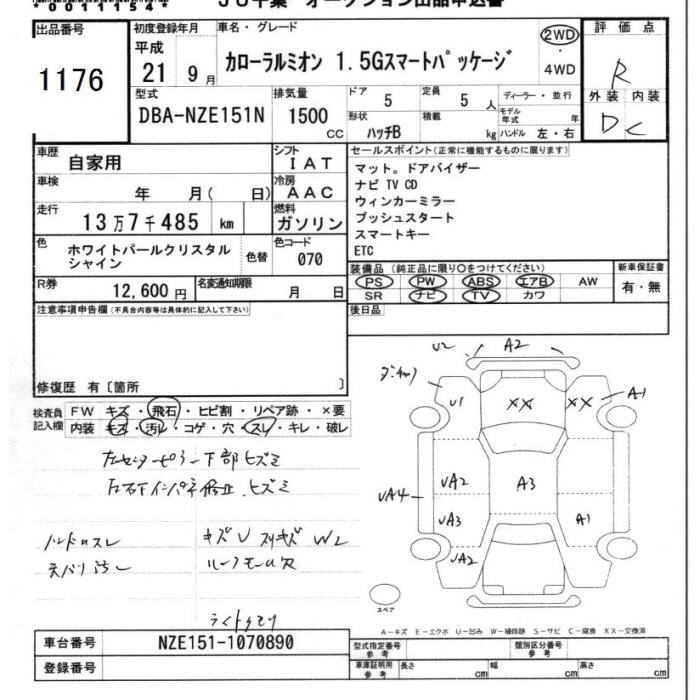 JU千葉 オークション出品申込書
出品番号
1176
初度登録年月
平成
21 9月
車名・グレード
カローラルミオン 1.5Gスマートパッケージ
2WD
・
4WD
評価点
R
外装 内装
D C
型式
DBA-NZE151N
排気量
1500
CC
ドア
5
定員
5 人
ディーラー・並行
形状
ハッチB
積載
kg
モデル年式 年
ハンドル 左・右
車歴
自家用
シフト
IAT
車検
年 月( 日)
冷房
AAC
走行
13万7千485 km
燃料
ガソリン
色
ホワイトパールクリスタル
シャイン
色替
色コード
070
R券
12,600 円
名変通知期限
月 日
セールスポイント(正常に機能するものに限ります)
マット。ドアバイザー
ナビ TV CD
ウィンカーミラー
プッシュスタート
スマートキー
ETC
装備品(純正品に限り○をつけてください)
PS PW ABS エアB AW
SR ナビ TV カワ
新車保証書
有・無
注意事項申告欄(不具合内容等は具体的に記入して下さい)
後日品
修復歴 有〔箇所 〕
検査員
記入欄
FW キズ・飛石・ヒビ割・リペア跡・×要
内装 キズ・汚レ・コゲ・穴・スレ・キレ・破レ
左センターピラー下部ヒズミ
左右下インパネ修正 ヒズミ
ハンドルスレ
天バリ汚レ
キズU スリキズ W2
ルーフモール欠
ライトクモリ
U2 A2
U1
XX
XX
A1
UA2
A3
UA4
UA3
A1
UA2
スペア
A−キズ E−エクボ U−凹み W−補修跡 S−サビ C−腐食 XX−交換済
車台番号
NZE151-1070890
登録番号
型式指定番号
参考
類別区分番号
参考
車庫証明用
参考
長さ cm
幅 cm
高さ cm